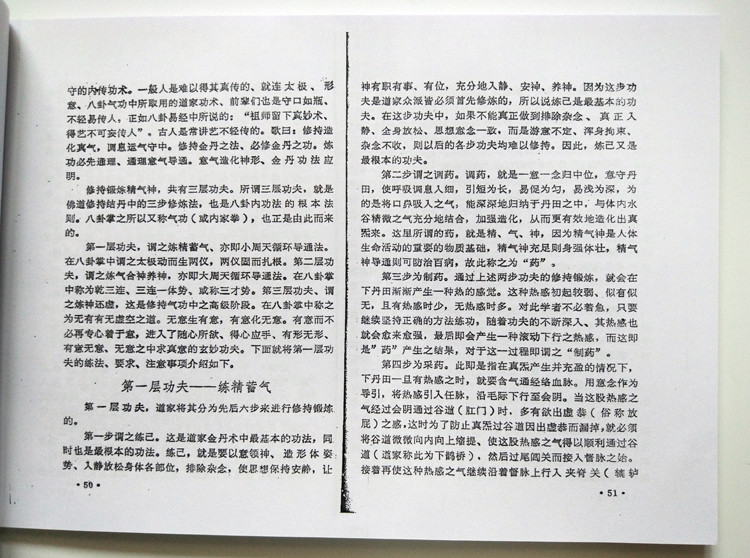 守的内传功术。一般人是难以得其真传的、就连太极、形
意、八卦气功中所取用的道家功术、前辈们也是守口如瓶、
不轻易传人，正如八卦易经中所说的：“祖师留下真妙术、
得艺不可妄传人”。古人是常讲艺不轻传的。歌曰：修持造
化真气，调息运气守中。修持金丹之法、必修金丹之功。炼
功必先通理、通理意气导通。意气造化神形、金丹功法应
明。
修持锻炼精气神，共有三层功夫。所谓三层功夫，就是
佛道修持结丹中的三步修炼法，也是八卦内功法的根本法
则。八卦掌之所以又称气功（或内家拳），也正是由此而来
的。
第一层功夫，谓之炼精蓄气、亦即小周天循环导通法。
在八卦掌中谓之太极动而生两仪，两仪固而扎根。第二层功
夫，谓之炼气合神养神，亦即大周天循环导通法。在八卦掌
中称为乾三连、三连一体势、或称三才势。第三层功夫、谓
之炼神还虚，这是修持气功中之高级阶段。在八卦掌中称之
为无有有无虚空之道。无意生有意，有意化无意。有意而不
必再专心着于意，进入了随心所欲、得心应手、有形无形、
有意无意、无意之中求真意的玄妙功夫。下面就将第一层功
夫的练法、要求、注意事项介绍如下。
第一层功夫——炼精蓄气
第一层功夫，道家将其分为先后六步来进行修持锻炼
的。
第一步谓之炼己。这是道家金丹术中最基本的功法，同
时也是最根本的功法。练己，就是要以意领神、造形体姿
势、入静放松身体各部位，排除杂念，使思想保持安静，让
·50·
神有职有事、有位，充分地入静、安神、养神。因为这步功
夫是道家众派皆必须首先修炼的，所以说炼己是最基本的功
夫。在这步功夫中，如果不能真正做到排除杂念、真正入
静、全身放松、思想意念一致，而是游意不定、浑身拘束、
杂念不收，则以后的各步功夫均难以修持。因此，炼己又是
最根本的功夫。
第二步谓之调药。调药，就是一意一念归中位，意守丹
田，使呼吸调息人细，引短为长，易促为匀，易浅为深，为
的是将口鼻吸入之气，能深深地归纳于丹田之中，与体内水
谷精微之气充分地结合，加强造化，从而更有效地造化出真
炁来。这里所谓的药，就是精、气、神，因为精气神是人体
生命活动的重要的物质基础，精气神充足则身强体壮，精气
神导通则可防治百病，故此称之为“药”。
第三步为制药。通过上述两步功夫的修持锻炼，就会在
下丹田渐渐产生一种热的感觉。这种热感初起较弱、似有似
无，且有热感时少，无热感时多。对此学者不必着急，只要
继续坚持正确的方法练功，随着功夫的不断深入、其热感也
就会愈来愈强，最后即会产生一种滚动下行之热感，而这即
是“药”产生之结果，对于这一过程即谓之“制药”。
第四步为采药。此即是指在真炁产生并充盈的情况下，
下丹田一旦有热感之时，就要含气通经络血脉。用意念作为
导引，将热感引入任脉，沿毛际下行至会阴。当这股热感之
气经过会阴通过谷道（肛门）时，多有欲出虚恭（俗称放
屁）之感，这时为了防止真炁过谷道因出虚恭而漏掉，就必须
将谷道微微向内向上缩提、使这股热感之气得以顺利通过谷
道（道家称此为下鹊桥），然后过尾闾关而接入督脉之始。
接着再使这种热感之气继续沿着督脉上行入夹脊关（辘轳
·51·